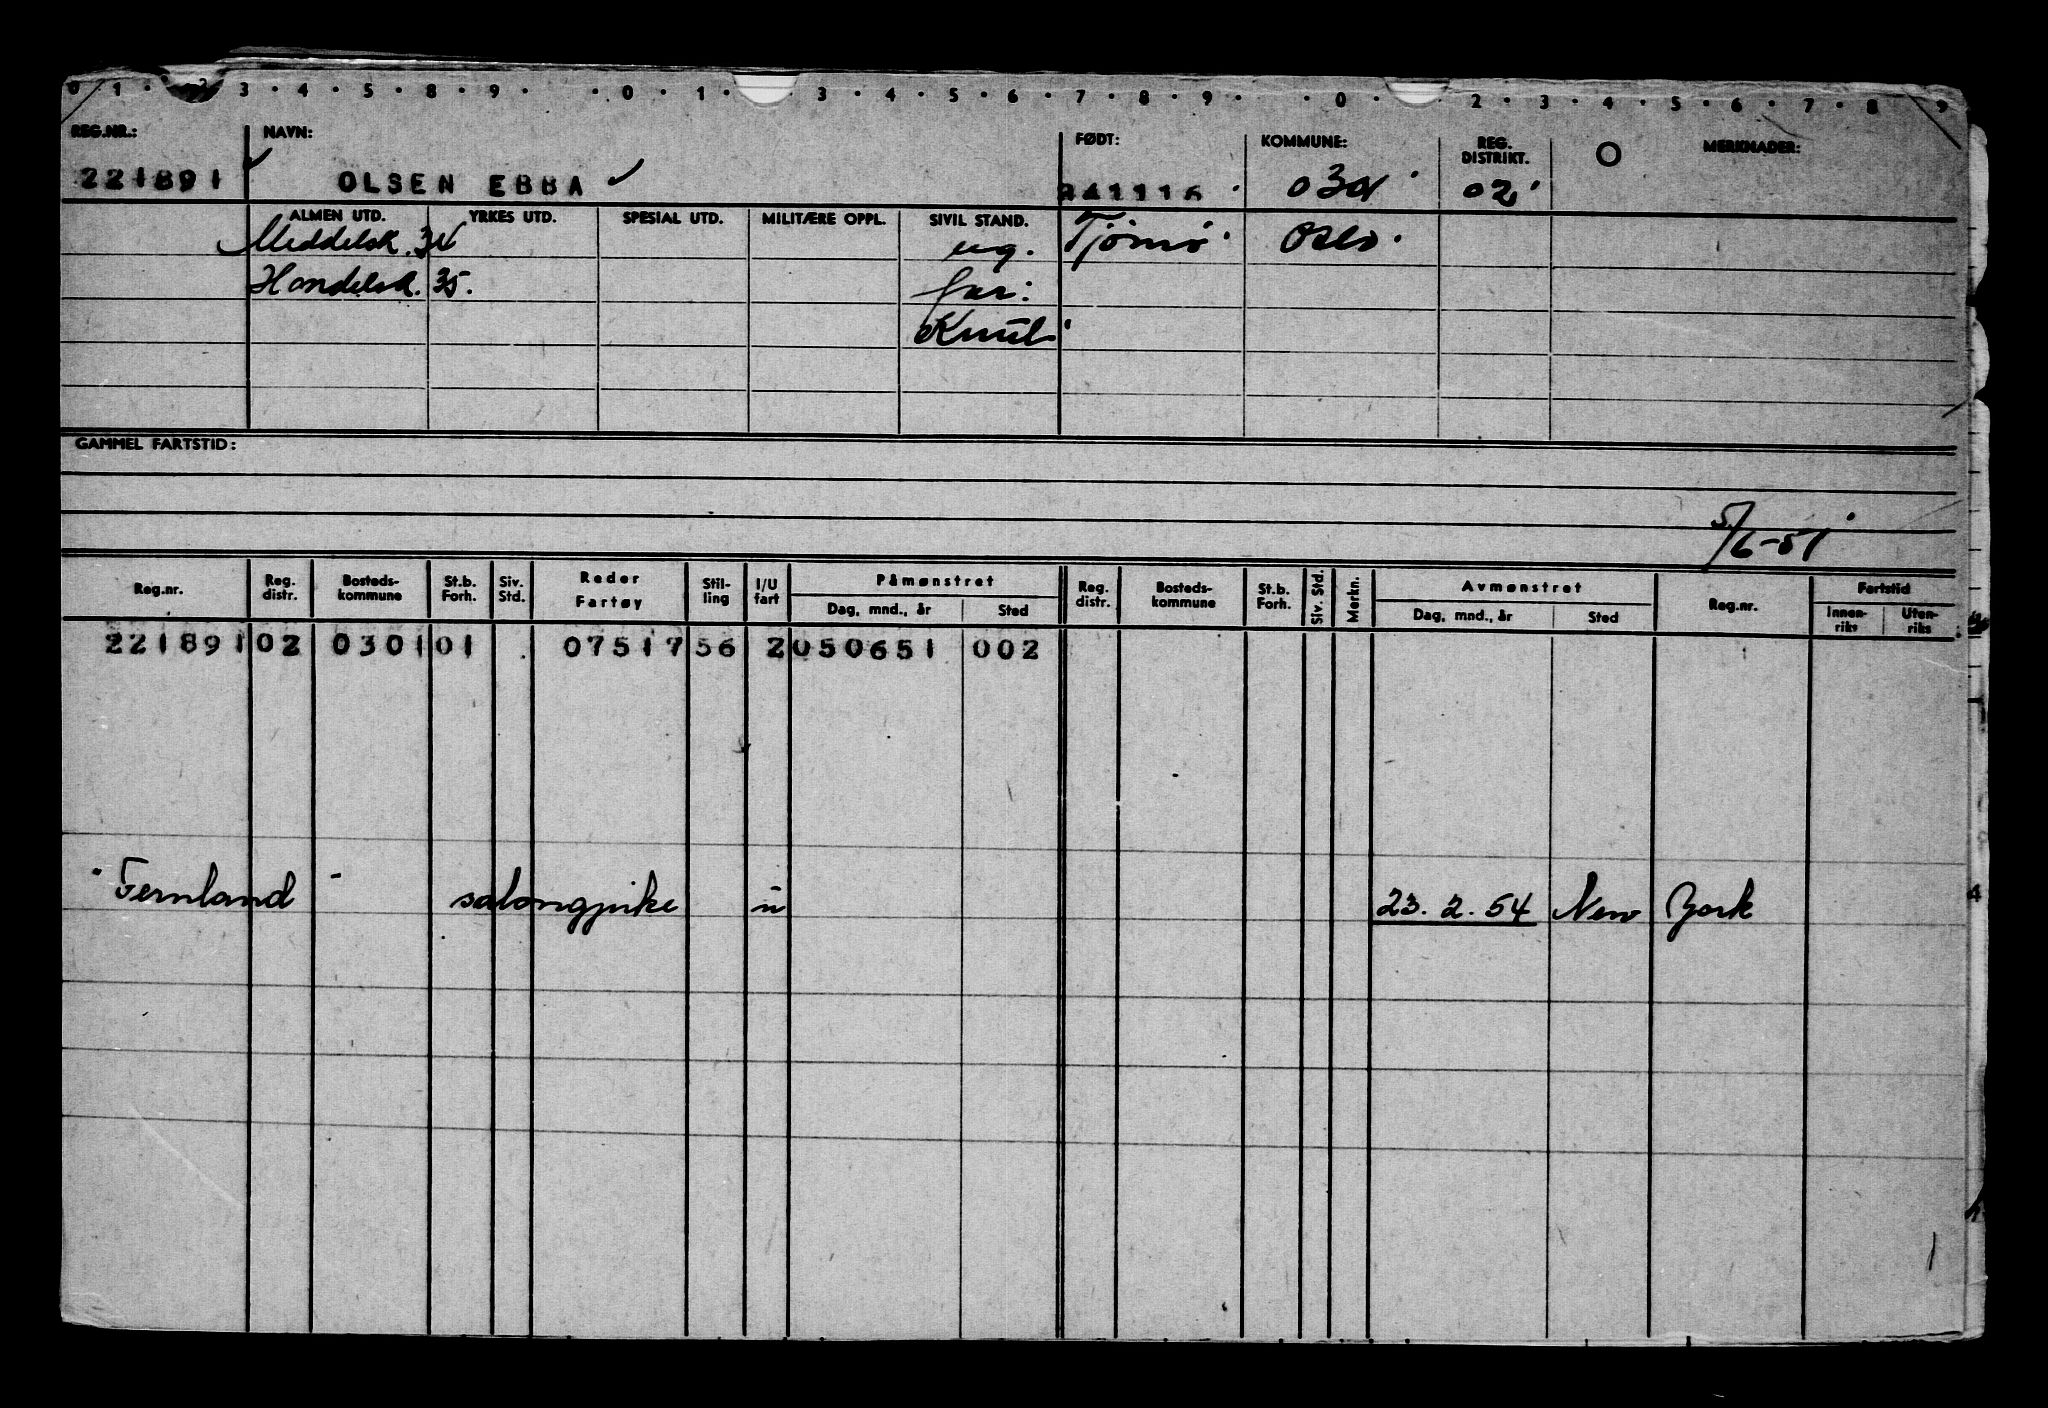 0 1 · 2 3 · 4 · 5 · 8 · 9 · · 0 · 1 · 3 · 4 · 5 · 6 · 7 · 8 · 9 · · 0 · 2 · 3 · 4 · 5 · 6 · 7 · 8 9
REG.NR.: NAVN: FØDT: KOMMUNE: REG. DISTRIKT. O MERKNADER:
221891 OLSEN EBBA 241116 0301 02
ALMEN UTD. YRKES UTD. SPESIAL UTD. MILITÆRE OPPL. SIVIL STAND.
Middelsk. 34 ug. Tjømø Oslo
Handelsk. 35. far:
Knut
GAMMEL FARTSTID:
5/6-51
Reg.nr. Reg. distr. Bosteds-kommune St.b. Forh. Siv. Std. Reder Fartøy Stil-ling I/U fart Påmønstret Dag, mnd., år Sted Reg. distr. Bosteds-kommune St.b. Forh. Siv. Std. Merkn. Avmønstret Dag, mnd., år Sted Reg.nr. Fartstid Innen-riks Uten-riks
221891 02 0301 01 07517 56 2 050651 002
"Fernland" salongpike u 23.2.54 New York